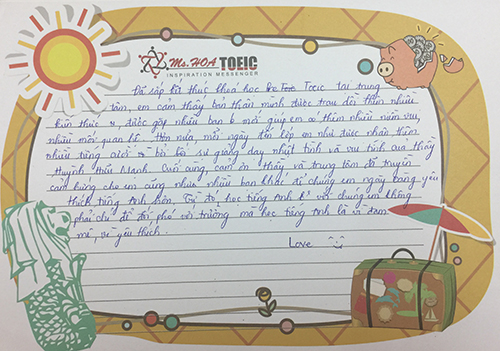 Ms.HOA TOEIC
INSPIRATION MESSENGER
Đã sắp kết thúc khoá học Pre Toeic tại trung
tâm, em cảm thấy bản thân mình được trau dồi thêm nhiều
kiến thức, được gặp nhiều bạn bè mới giúp em có thêm nhiều niềm vui,
nhiều mối quan hệ. Hơn nữa, mỗi ngày đến lớp em như được nhân thêm
nhiều tiếng cười bởi sự giảng dạy nhiệt tình và vui tính của thầy
Huỳnh Hữu Mạnh. Cuối cùng, cảm ơn thầy và trung tâm đã truyền
cảm hứng cho em cũng như nhiều bạn khác để chúng em ngày càng yêu
thích tiếng Anh hơn. Từ đó, học tiếng Anh với chúng em không
phải chỉ để đối phó với trường mà học tiếng Anh là vì đam
mê, vì yêu thích.
Love